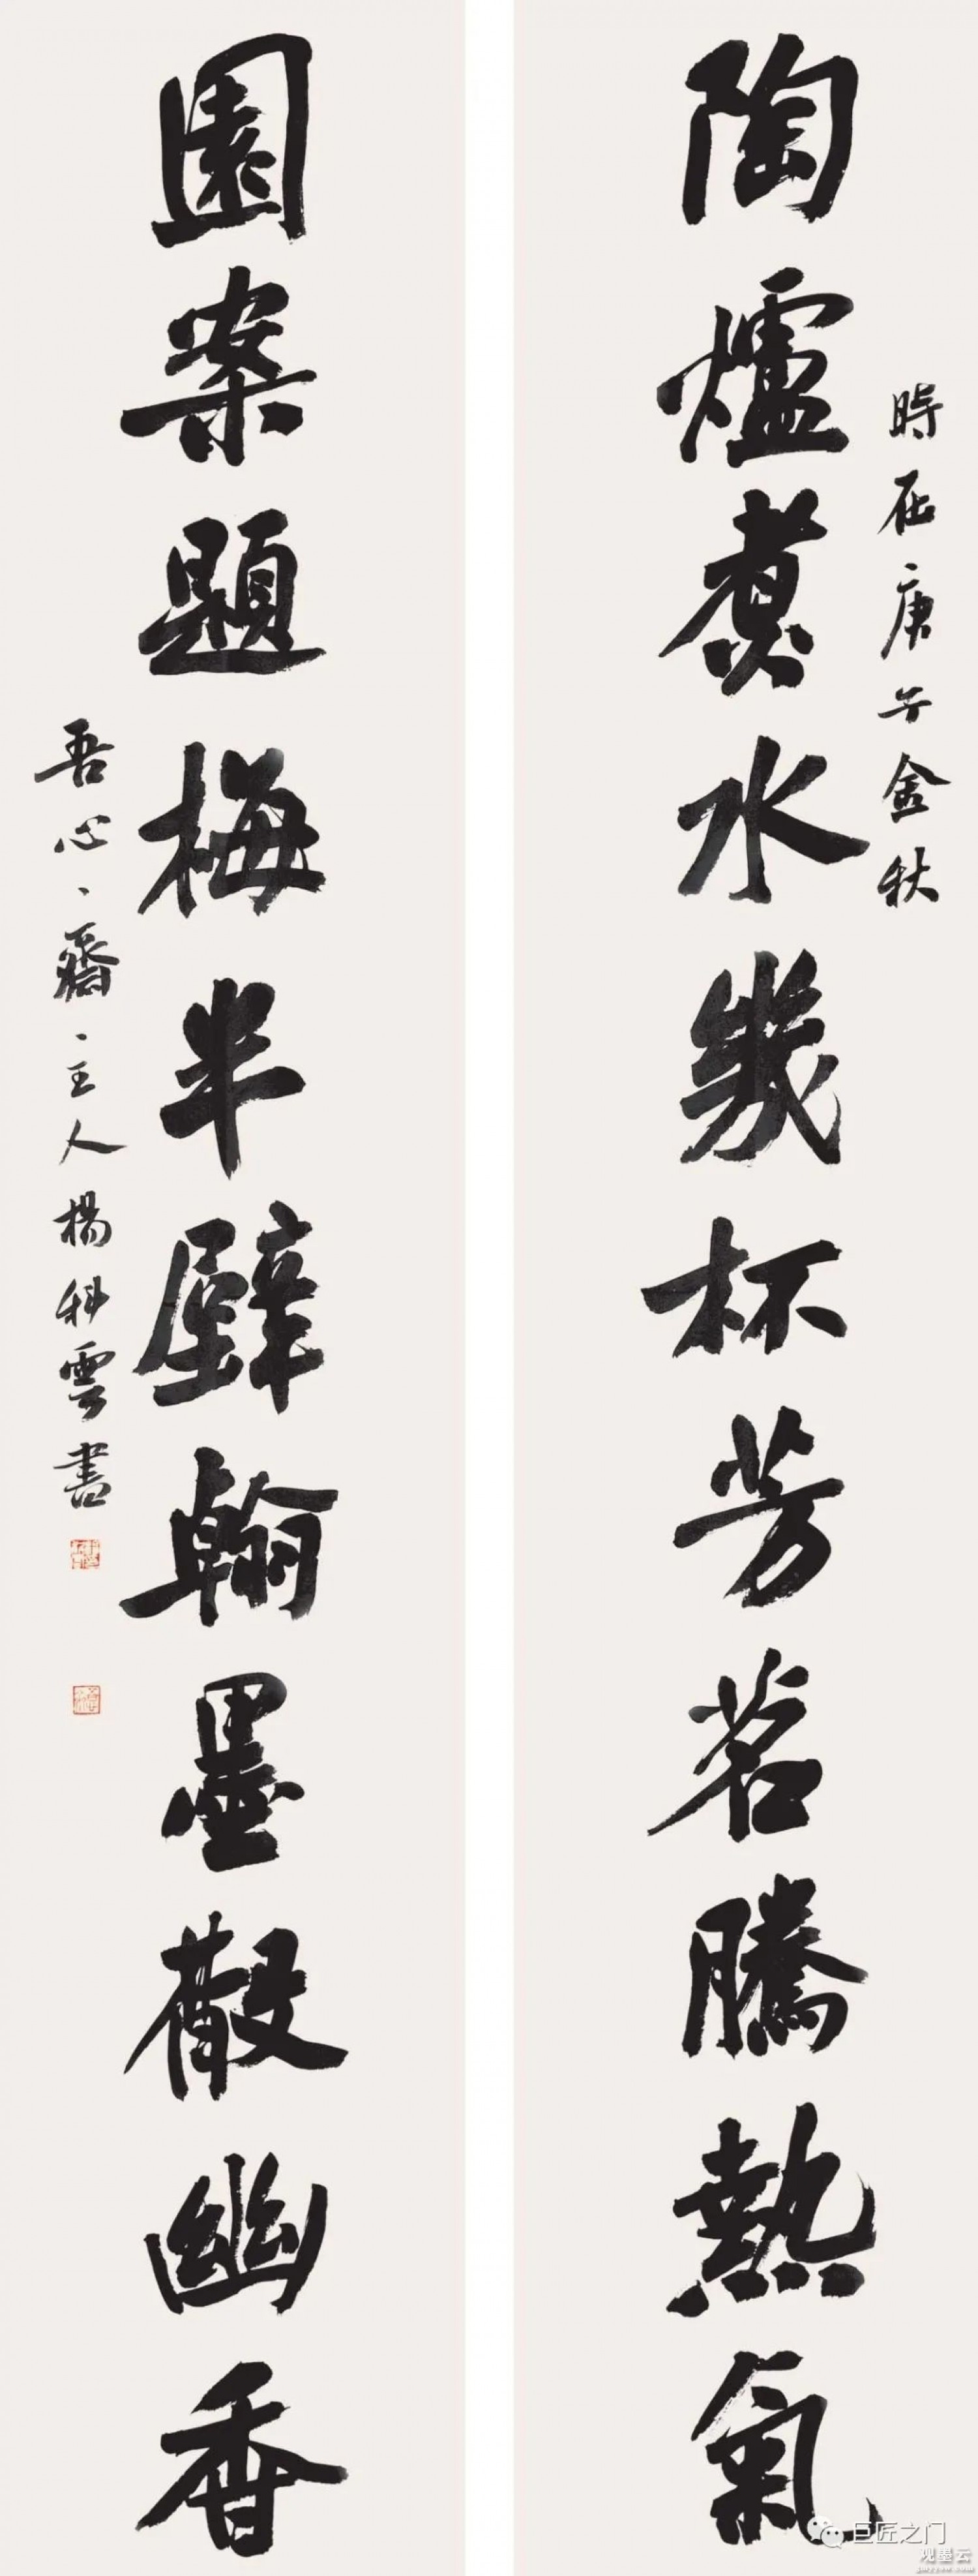 時在庚子金秋
陶爐煮水幾杯芳茗騰熱氣
園案題梅半壁翰墨散幽香
吾心齋主人楊科雲書
巨匠之门
观墨云